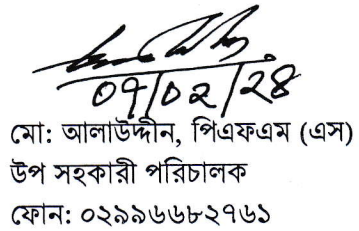 ০৭/০২/২৪
মো: আলাউদ্দীন, পিএফএম (এস)
উপ সহকারী পরিচালক
ফোন: ০২৯৯৬৬৮২৭৬১